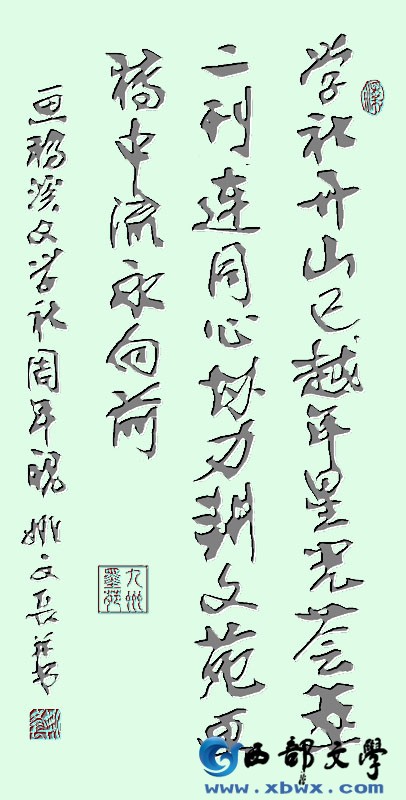 学社开山已越年星光荟画
二刊连同心协力耕文苑画
稿中流永向前
画稿溪文学社周年 姚文长并书
九州墨苑
西部文學
www.xbwx.com